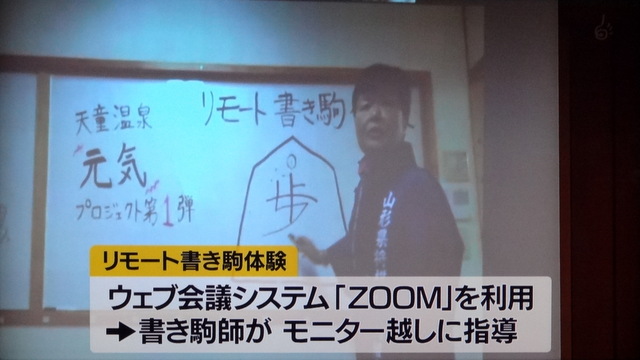 天童温泉
元気
プロジェクト第1弾
リモート書き駒
歩
リモート書き駒体験
ウェブ会議システム「ZOOM」を利用
→書き駒師が モニター越しに指導